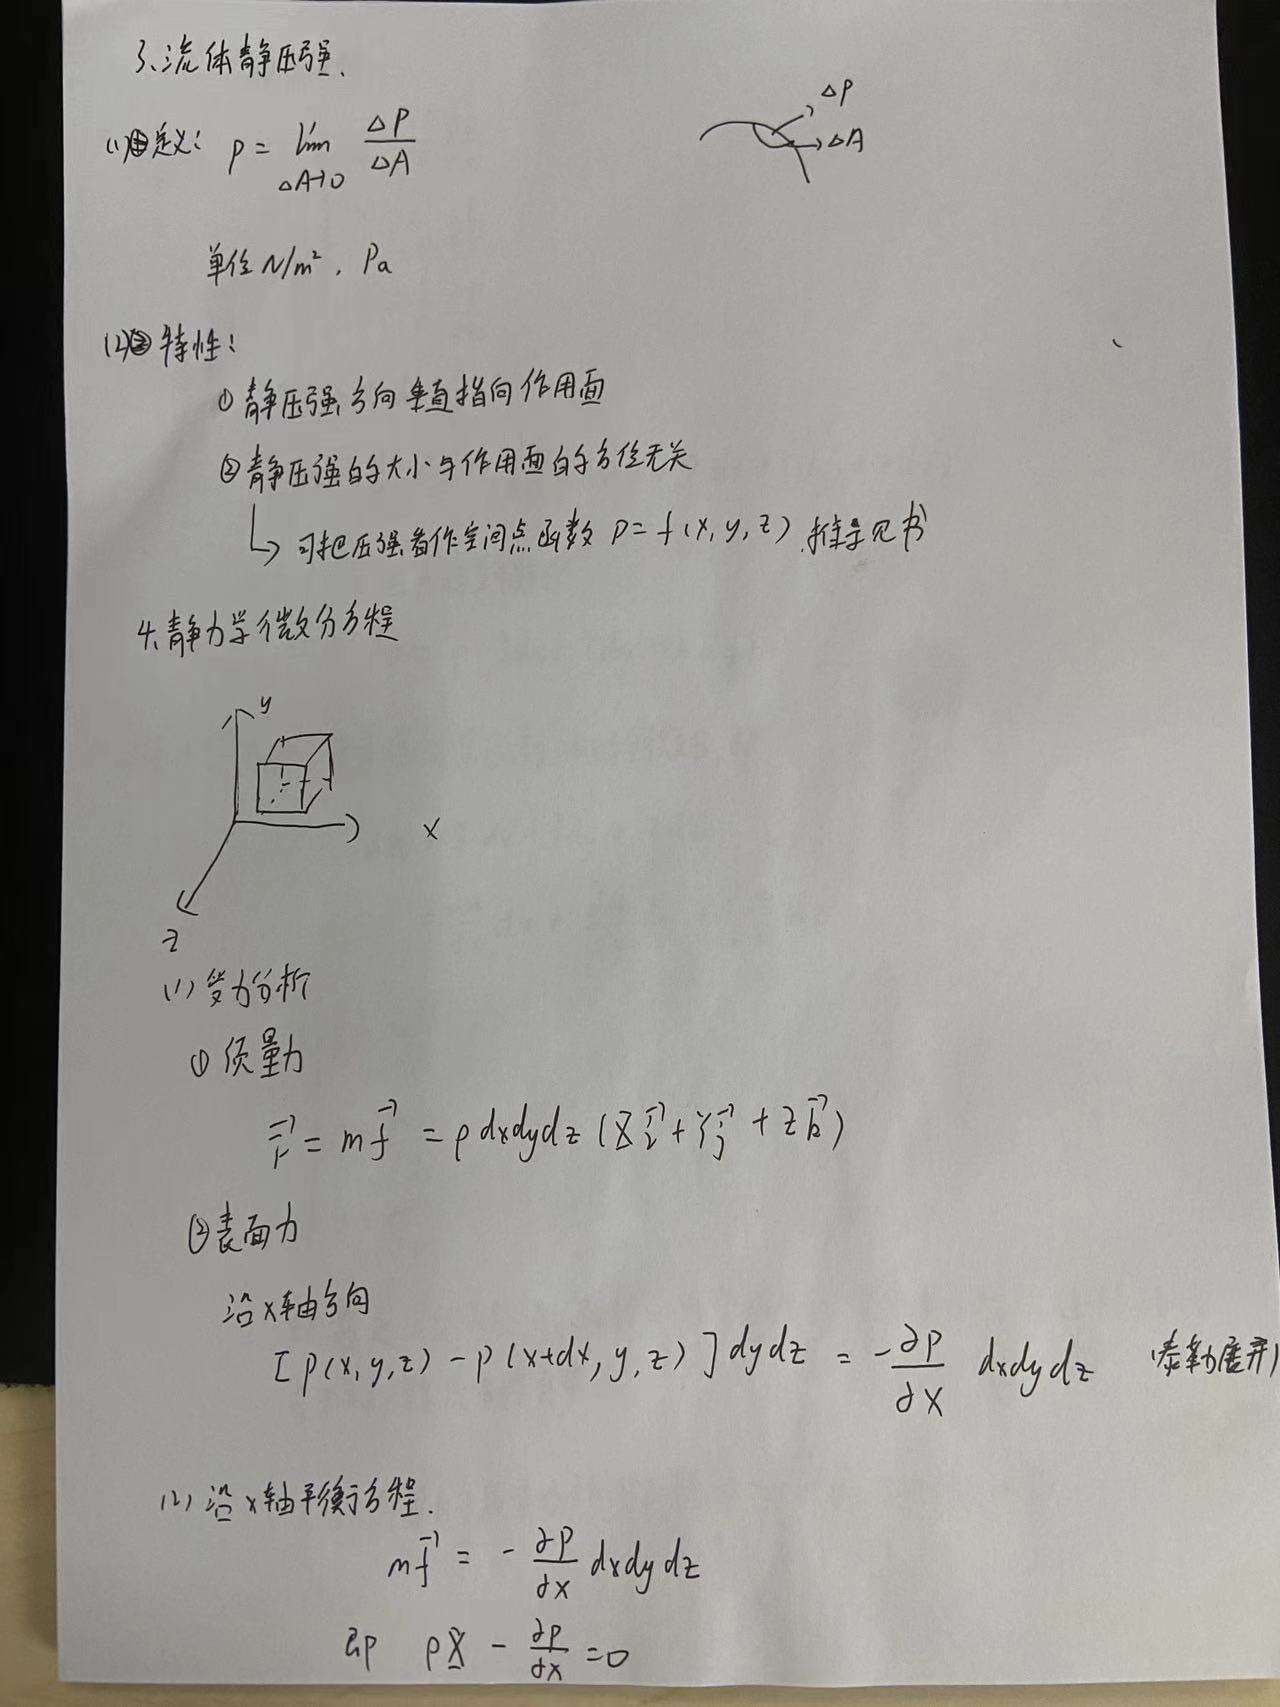 3、流体静压强.
ΔP
ΔA
(1) 定义: p = lim ΔP/ΔA
ΔA→0
单位 N/m², Pa
(2) 特性:
① 静压强方向垂直指向作用面
② 静压强的大小与作用面的方位无关
↳ 可把压强看作空间点函数 p = f(x, y, z) 推导见书
4、静力学微分方程
y
x
z
(1) 受力分析
① 质量力
F⃗ = mf⃗ = ρdxdydz (Xi⃗ + Yj⃗ + Zk⃗)
② 表面力
沿x轴方向
[p(x,y,z) - p(x+dx, y, z)] dydz = -∂p/∂x dxdydz (泰勒展开)
(2) 沿x轴平衡方程.
mf⃗ = -∂p/∂x dxdydz
即 ρX - ∂p/∂x = 0